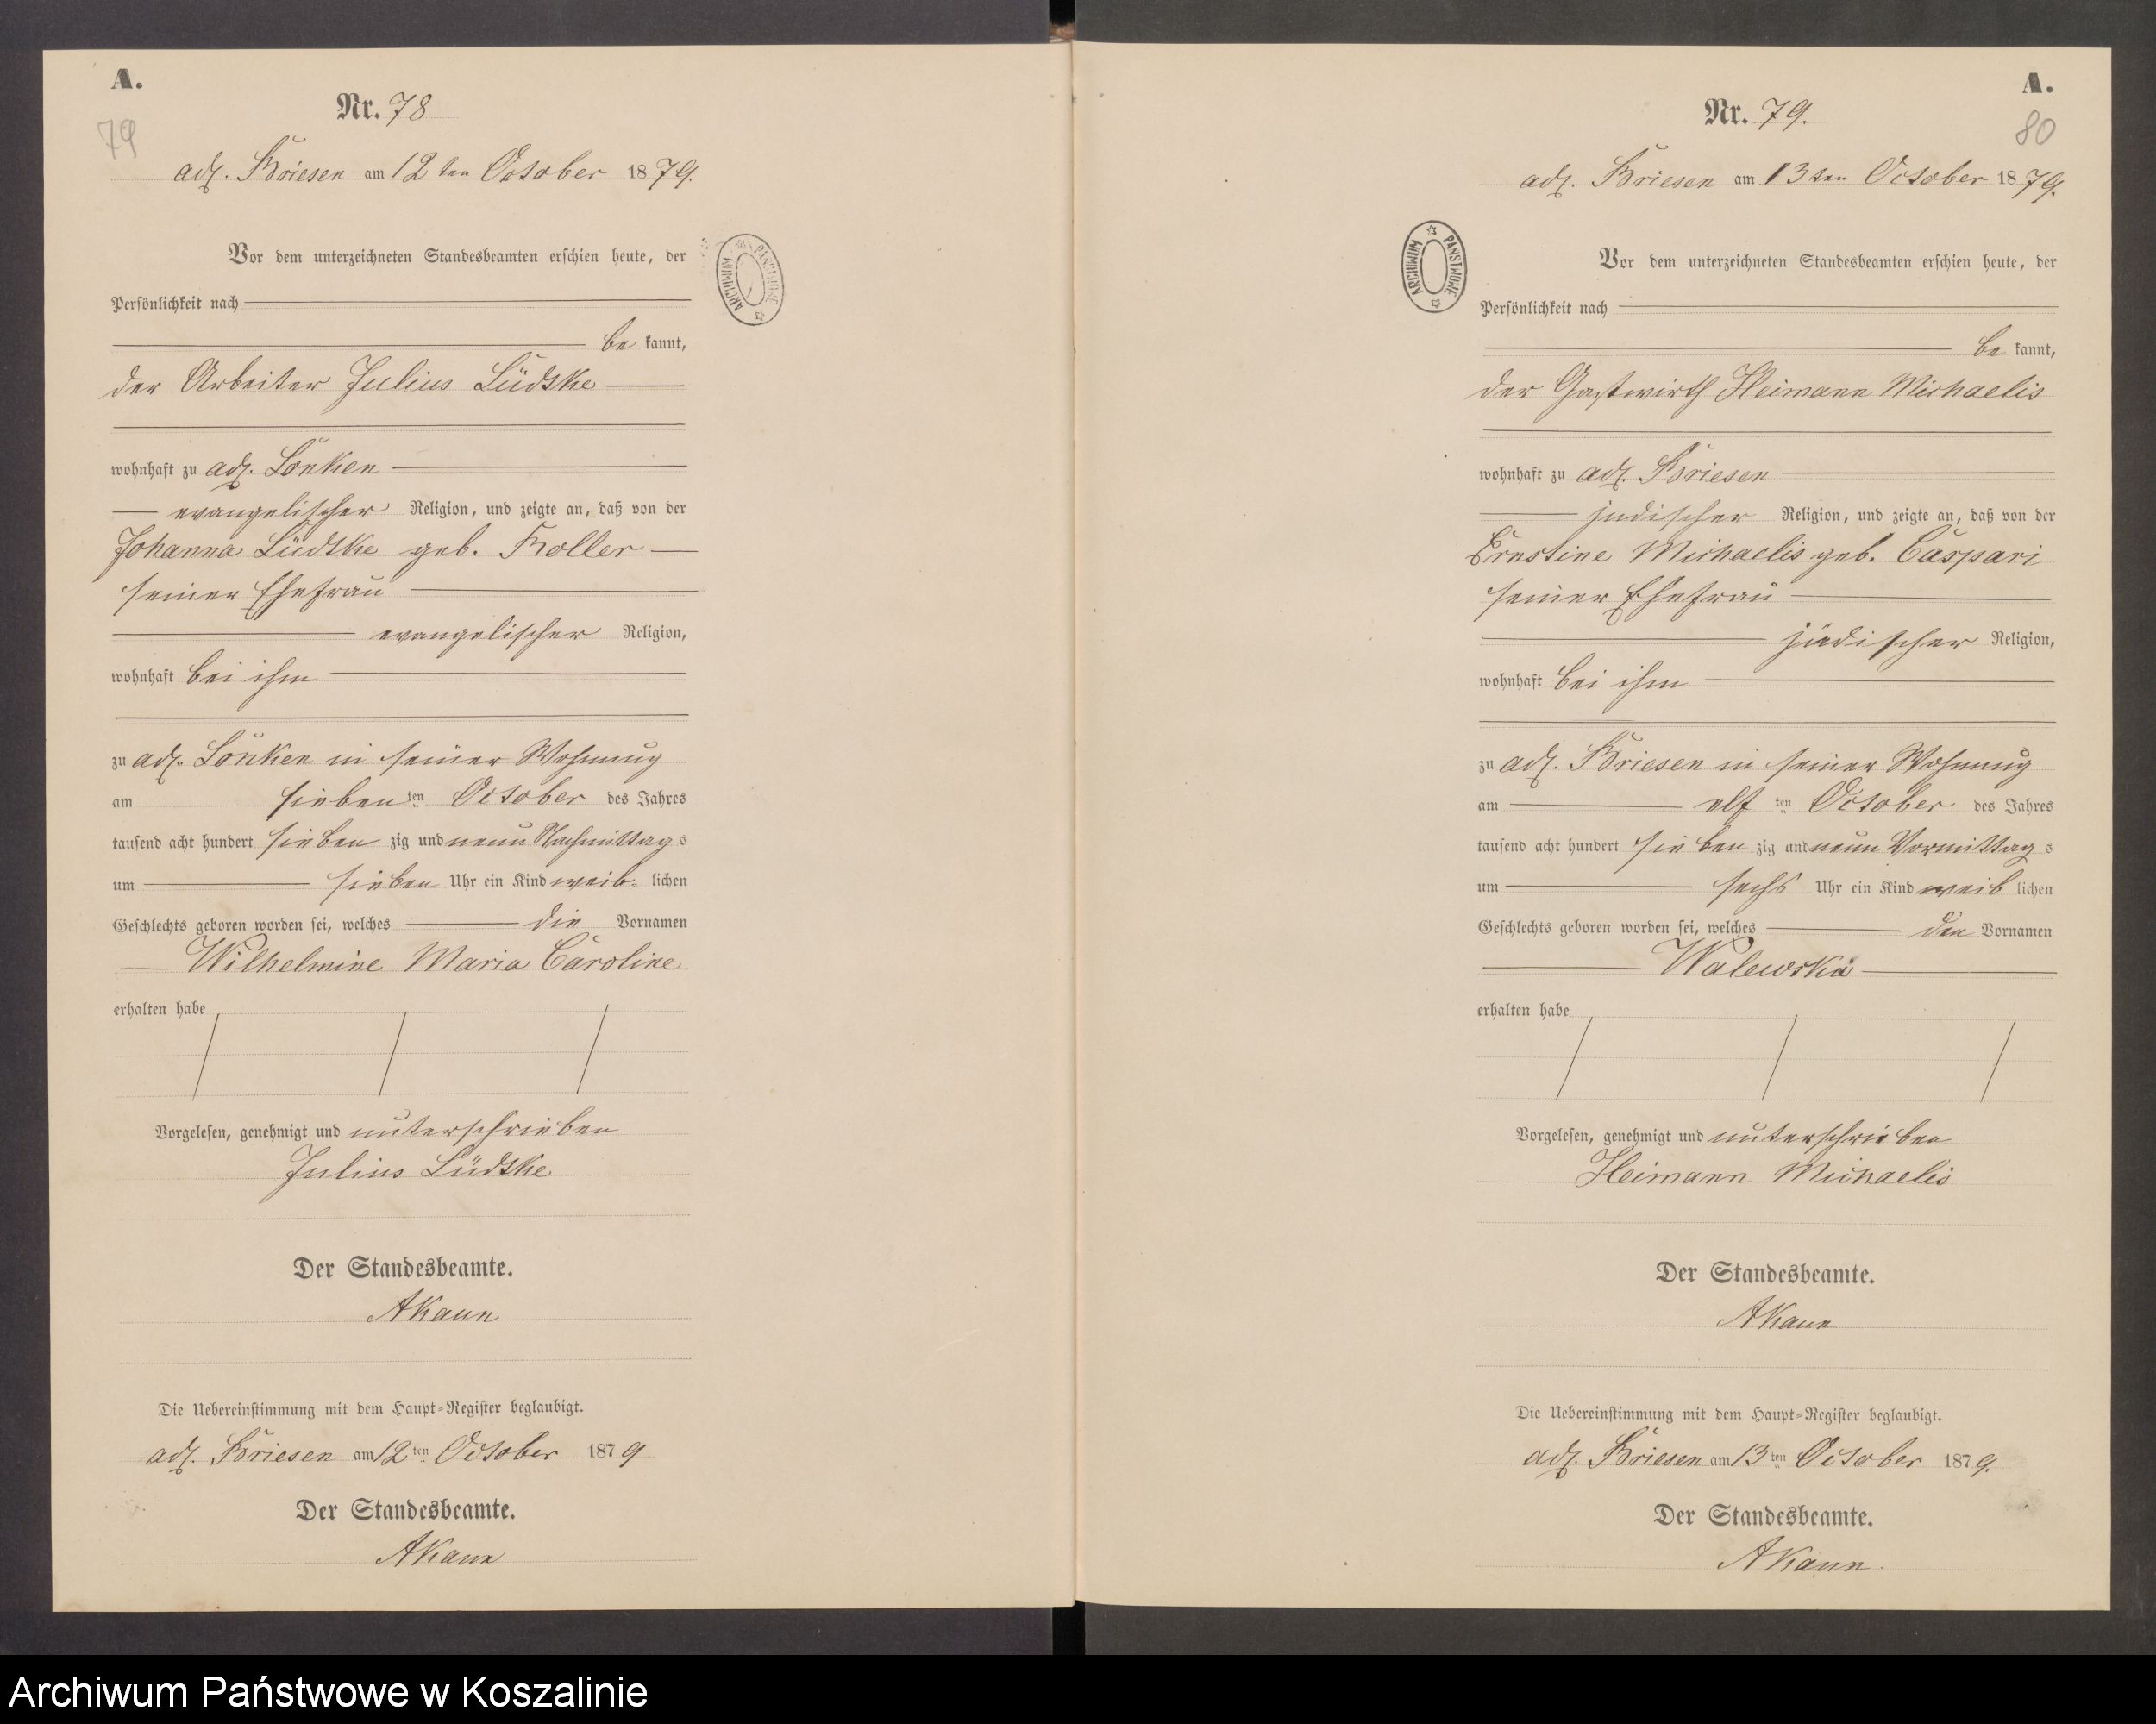 A.
79
Nr. 78
adl. Briesen am 12ten October 1879.
Vor dem unterzeichneten Standesbeamten erschien heute, der
Persönlichkeit nach
be kannt,
der Arbeiter Julius Lüdtke
wohnhaft zu adl. Lonken
evangelischer Religion, und zeigte an, daß von der
Johanna Lüdtke geb. Koller
seiner Ehefrau
evangelischer Religion,
wohnhaft bei ihm
zu adl. Lonken in seiner Wohnung
am siebenten October des Jahres
tausend acht hundert sieben zig und neun Nachmittags
um sieben Uhr ein Kind weib- lichen
Geschlechts geboren worden sei, welches die Vornamen
Wilhelmine Maria Caroline
erhalten habe
Vorgelesen, genehmigt und unterschrieben
Julius Lüdtke
Der Standesbeamte.
AKaun
Die Uebereinstimmung mit dem Haupt-Register beglaubigt.
adl. Briesen am 12ten October 1879
Der Standesbeamte.
AKaun
A.
80
Nr. 79.
adl. Briesen am 13ten October 1879.
ARCHIWUM PAŃSTWOWE
Vor dem unterzeichneten Standesbeamten erschien heute, der
Persönlichkeit nach
be kannt,
der Gastwirth Heimann Michaelis
wohnhaft zu adl. Briesen
judischer Religion, und zeigte an, daß von der
Ernstine Michaelis geb. Caspari
seiner Ehefrau
jüdischer Religion,
wohnhaft bei ihm
zu adl. Briesen in seiner Wohnung
am elf ten October des Jahres
tausend acht hundert sieben zig und neun Vormittags
um sechs Uhr ein Kind weib lichen
Geschlechts geboren worden sei, welches den Vornamen
Walewska
erhalten habe
Vorgelesen, genehmigt und unterschrieben
Heimann Michaelis
Der Standesbeamte.
AKaun
Die Uebereinstimmung mit dem Haupt-Register beglaubigt.
adl. Briesen am 13ten October 1879.
Der Standesbeamte.
AKaun.
Archiwum Państwowe w Koszalinie